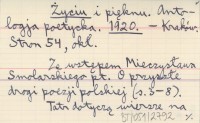 Życiu i pięknu. Anto-
logja poetycka. 1920. – Kraków.
Stron 54, okł.
Ze wstępem Mieczysława
Smolarskiego p.t. O przyszłe
drogi poezji polskiej (s.3-8).
Tatr dotyczą wiersze na